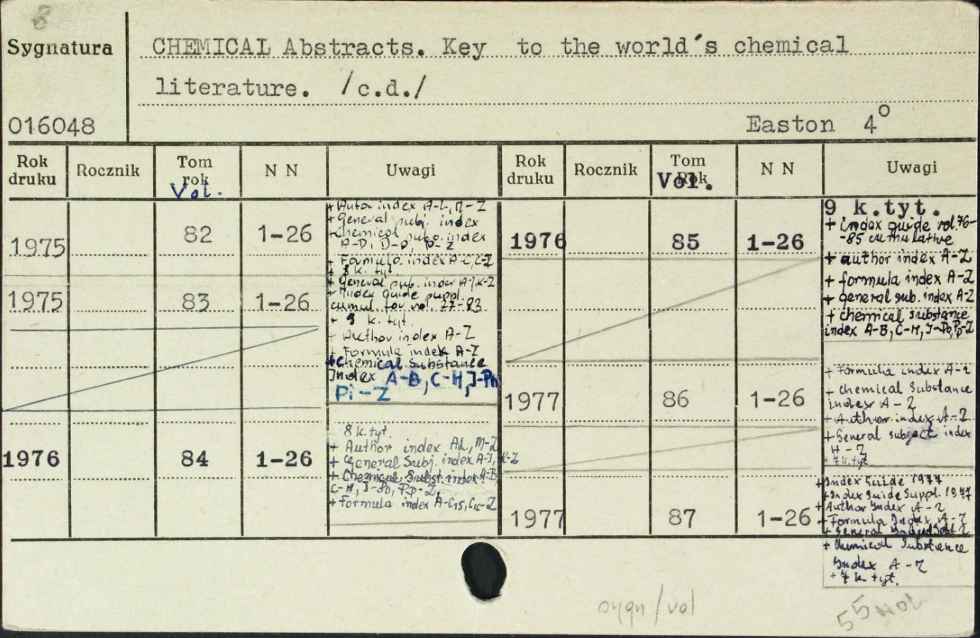 8
Sygnatura
CHEMICAL Abstracts. Key to the world's chemical
literature. /c.d./
016048
Easton 4°
Rok druku
Rocznik
Tom rok
Vol.
N N
Uwagi
Rok druku
Rocznik
Tom Rok
Vol.
N N
Uwagi
1975 82 1-26
+ Autor index A-L, M-Z
+ General subj. index
+ Formula index
+ 8 k. tyt.
1975 83 1-26
+ General sub. index
+ Index guide suppl.
cumul. for vol.
+ 9 k. tyt.
- Author index A-Z
+ Formula index A-Z
+ Chemical Substance
Index A-B, C-H, I-Ph
Pi-Z
1976 84 1-26
8 k.tyt.
+ Author index AL, M-Z
+ General Subj. index A-J, K-Z
+ Chemical Subst. index A-B
+ Formula index
1976 85 1-26
9 k.tyt.
+ index guide vol. 76-
-85 cumulative
+ author index A-Z
+ formula index A-Z
+ general sub. index A-Z
+ chemical substance
index A-B, C-H, I-Po, Pp-Z
1977 86 1-26
+ Formula index A-Z
+ chemical Substance
index A-Z
+ Author index A-Z
+ General subject index
A-Z
+ 7 k. tyt.
1977 87 1-26
+ Index Guide 1977
+ Index Guide Suppl. 1977
+ Author Index A-Z
+ Formula Index A-Z
+ General
+ Chemical Substance
Index A-Z
+ 7 k. tyt.
55 vol